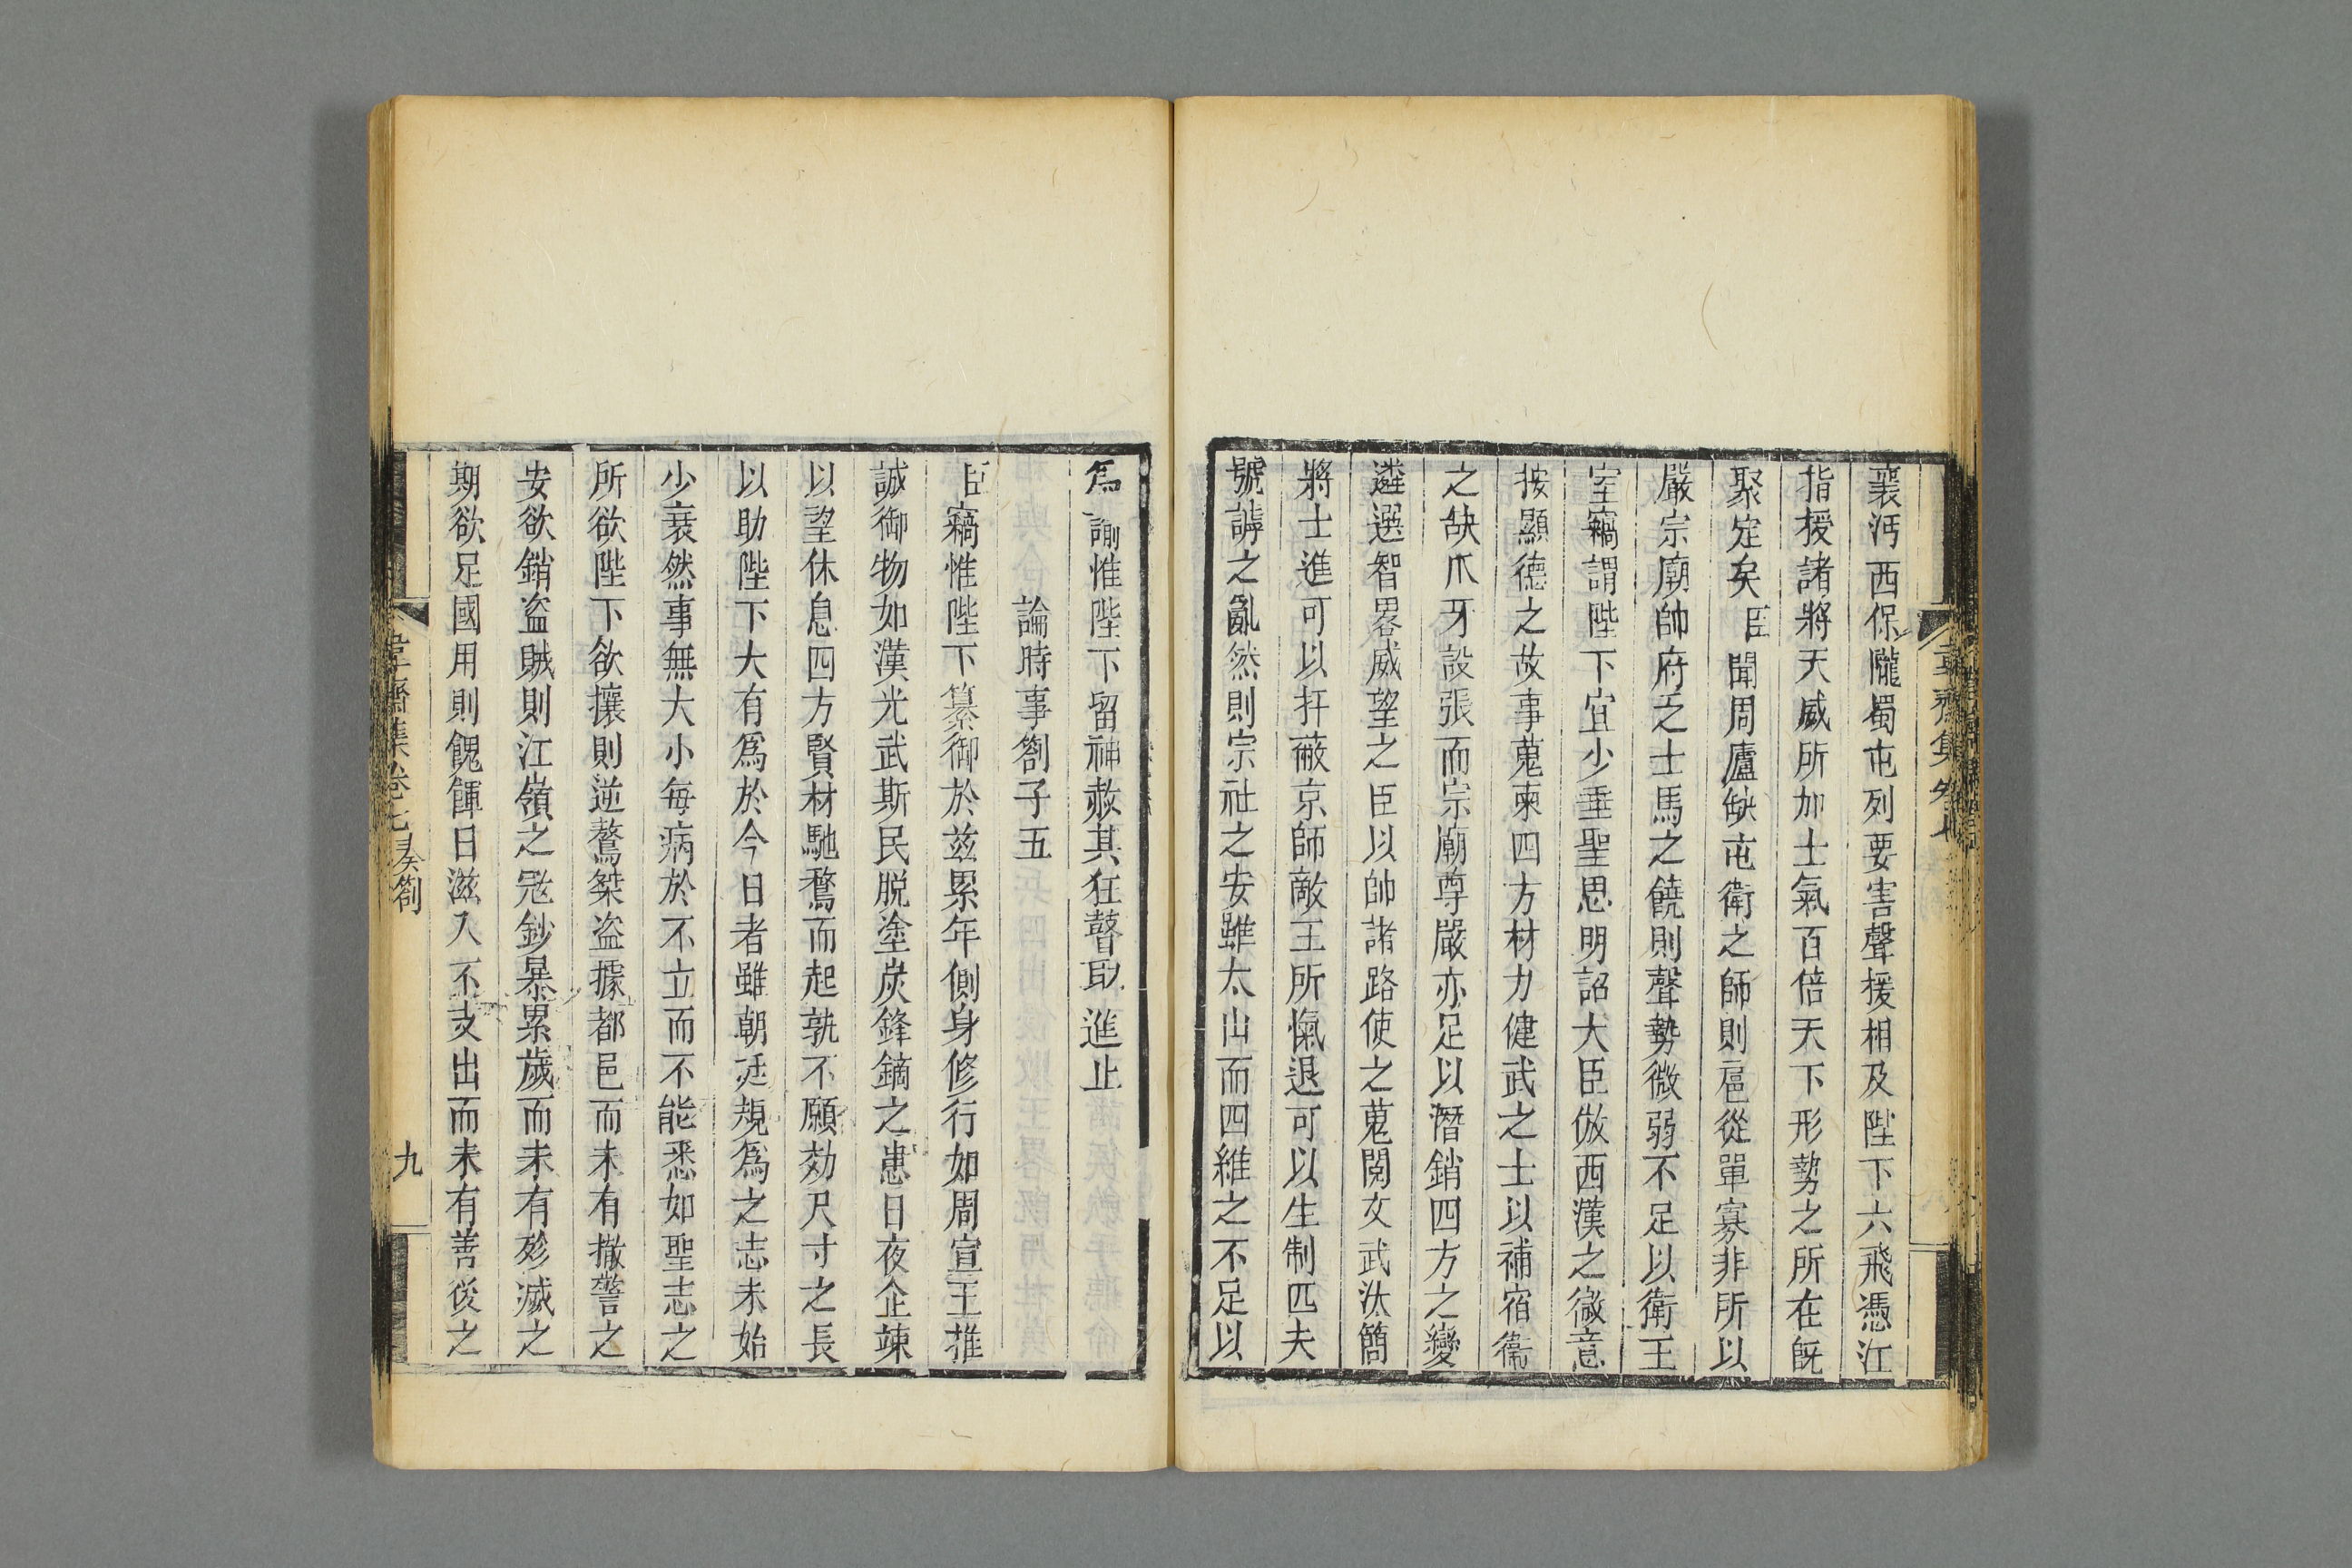 襄沔西保隴蜀屯列要害聲援相及陛下六飛憑江
指授諸將天威所加士氣百倍天下形勢之所在旣
聚定矣臣聞周廬缺屯衛之師則扈從單寡非所以
嚴宗廟帥府乏士馬之饒則聲勢微弱不足以衛王
室竊謂陛下宜少垂聖思明詔大臣倣西漢之微意
按顯德之故事蒐柬四方材力健武之士以補宿衛
之缺爪牙設張而宗廟尊嚴亦足以潛銷四方之變
遴選智畧威望之臣以帥諸路使之蒐閱文武汰簡
將士進可以扞蔽京師敵王所愾退可以生制匹夫
號謼之亂然則宗社之安雖太山而四維之不足以
爲諭惟陛下留神赦其狂瞽取進止
論時事劄子五
臣竊惟陛下纂御於茲累年側身修行如周宣王推
誠御物如漢光武斯民脫塗炭鋒鏑之患日夜企竦
以望休息四方賢材馳騖而起孰不願効尺寸之長
以助陛下大有爲於今日者雖朝廷規爲之志未始
少衰然事無大小每病於不立而不能悉如聖志之
所欲陛下欲攘則逆鶩桀盜據都邑而未有撤警之
安欲銷盜賊則江嶺之寇鈔暴累歲而未有殄滅之
期欲足國用則餽餫日滋入不支出而未有善後之
韋齋集卷七 奏劄
九